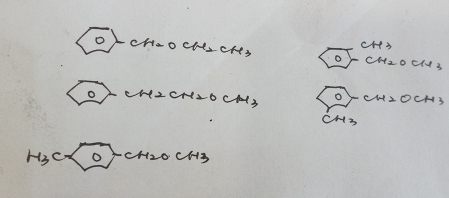 -CH2OCH2CH3
-CH2CH2OCH3
H3C- -CH2OCH3
CH3
-CH2OCH3
-CH2OCH3
CH3